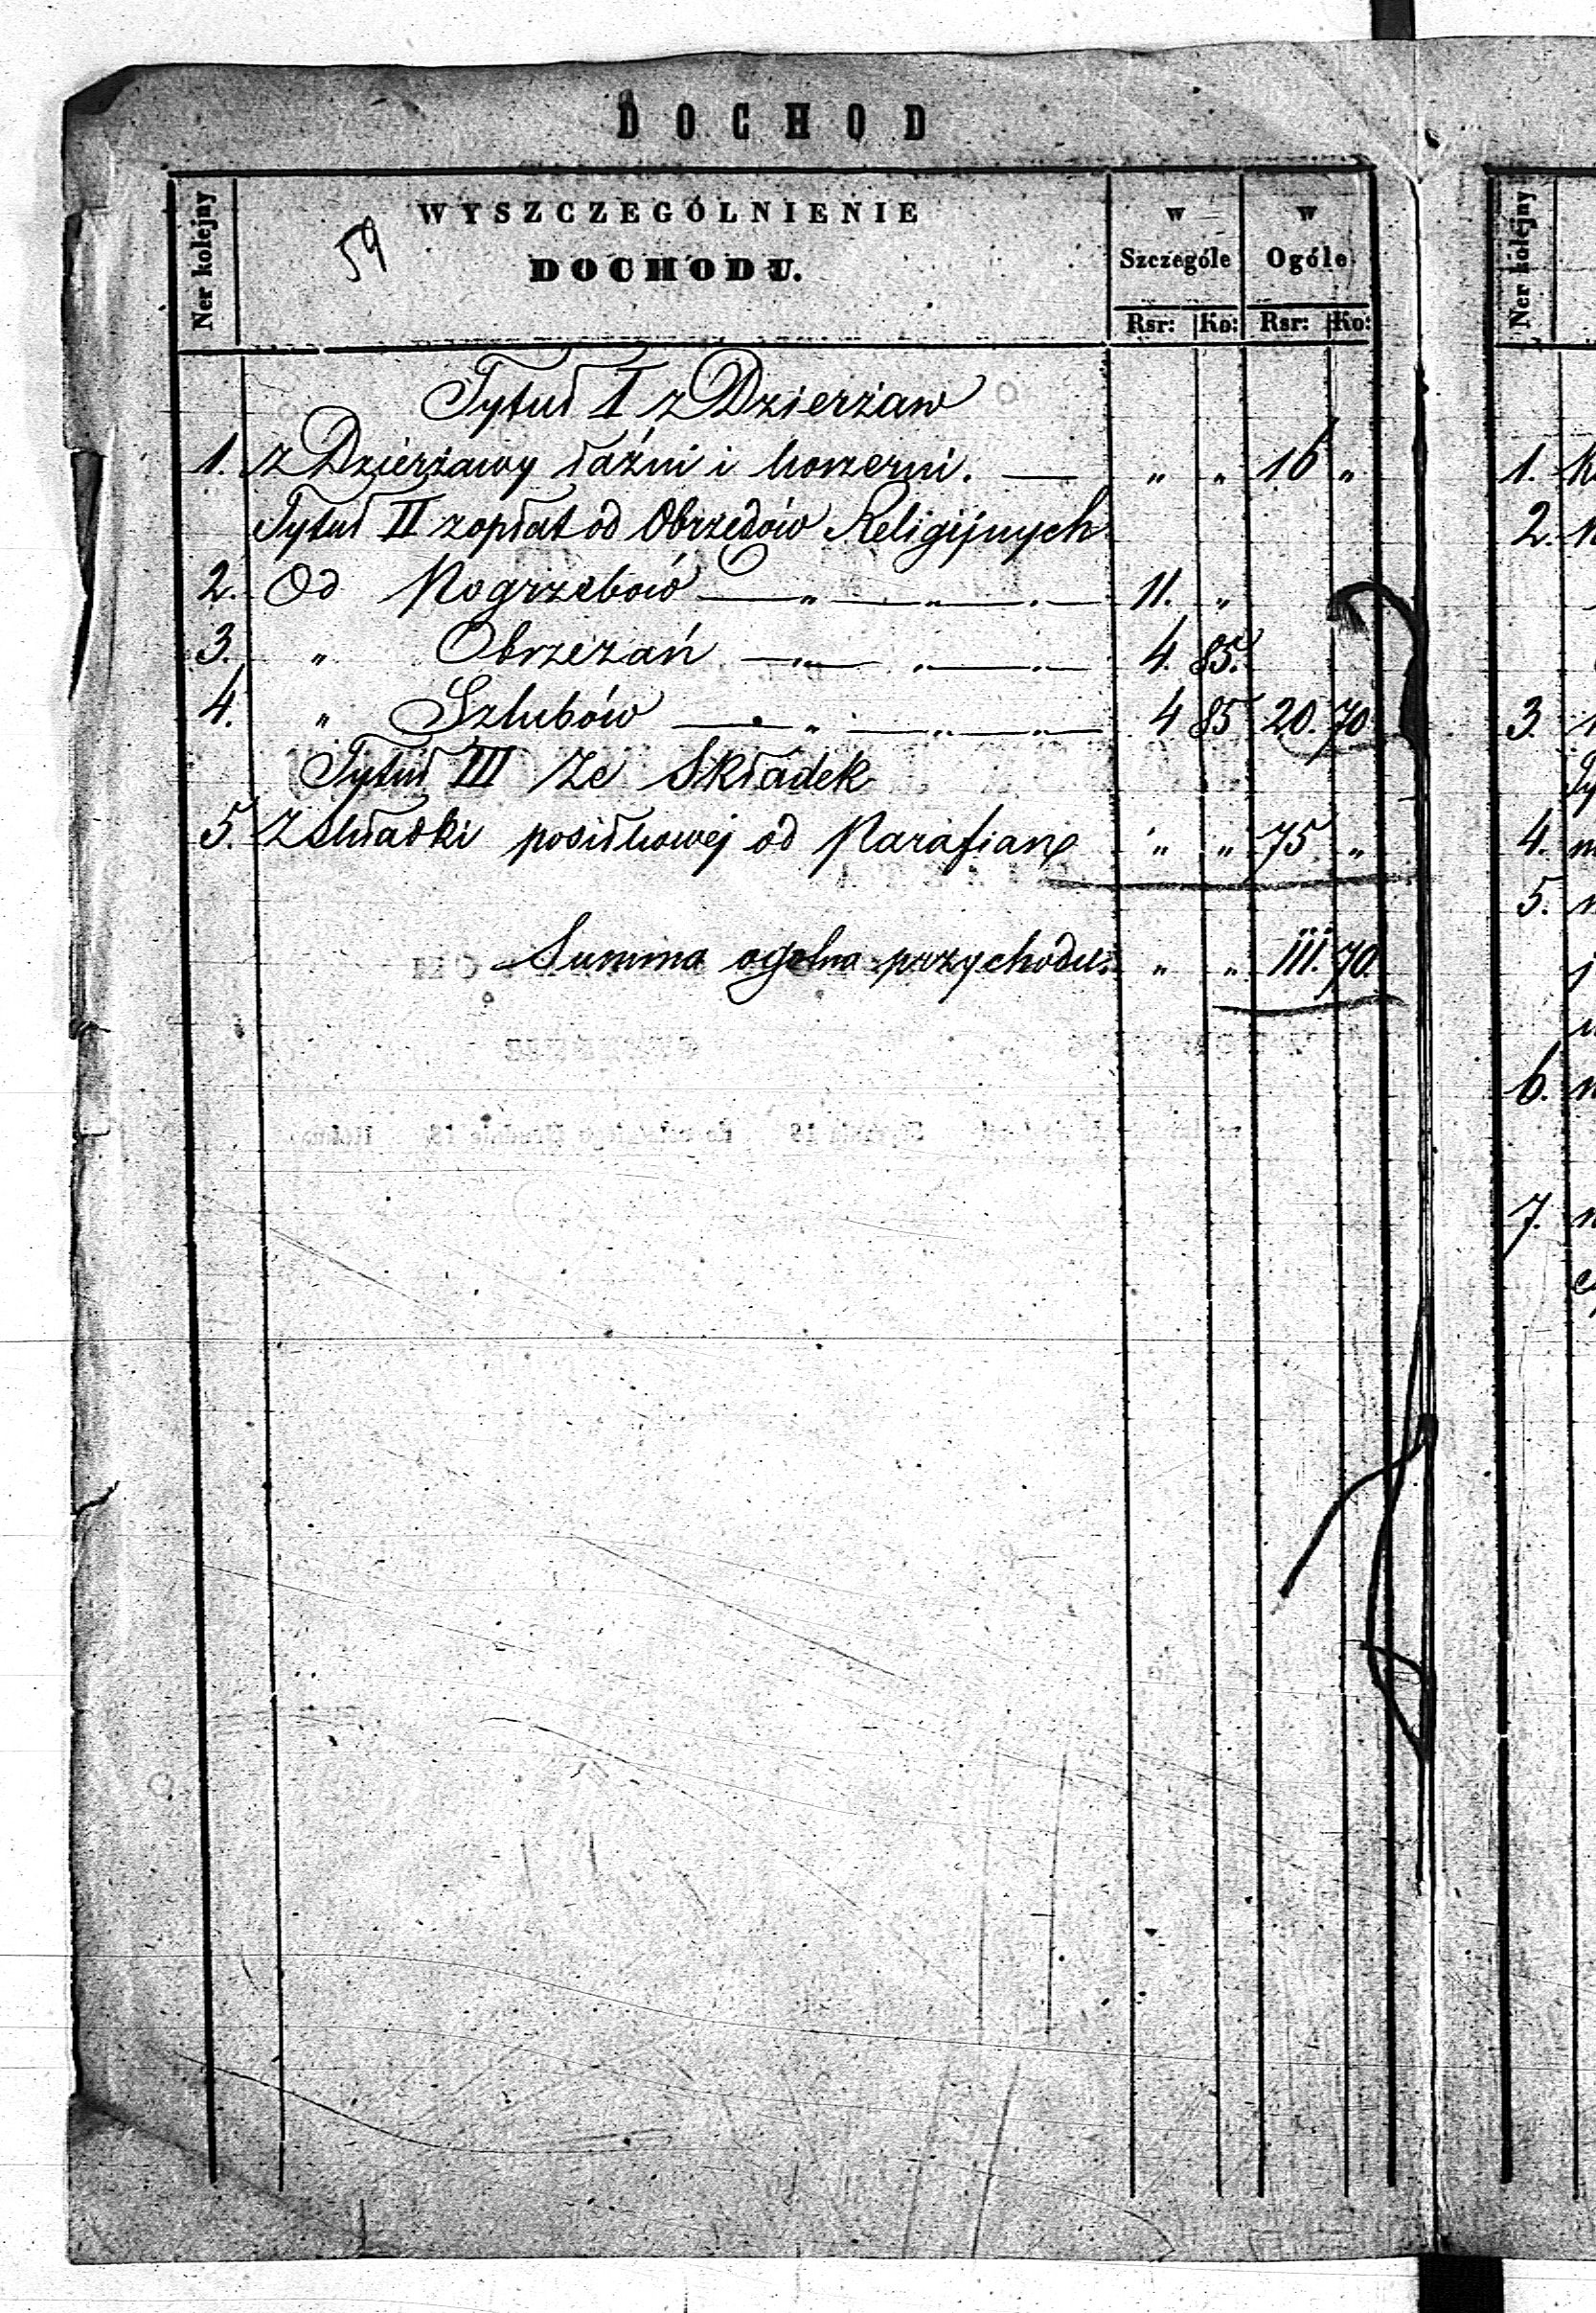 DOCHOD
Ner kolejny
WYSZCZEGÓLNIENIE
DOCHODU.
59
w Szczególe
w Ogóle
Rsr: Ko: Rsr: Ko:
Tytuł I z Dzierżaw
1. z Dzierżawy łaźni i koszerni. — " " 16 "
Tytuł II z opłat od Obrzędów Religijnych
2. Od Pogrzebów — " — " — . — 11. "
3. " Obrzezań — " — " — . — 4. 85.
4. " Szlubów — . " — " — " — 4 85 20. 70
Tytuł III Ze Składek
5. Z składki posiłkowej od Parafian " " 75 "
Summa ogolna przychodu. " " 111. 70.
Ner kolejny
1.
2.
3.
4.
5.
6.
7.